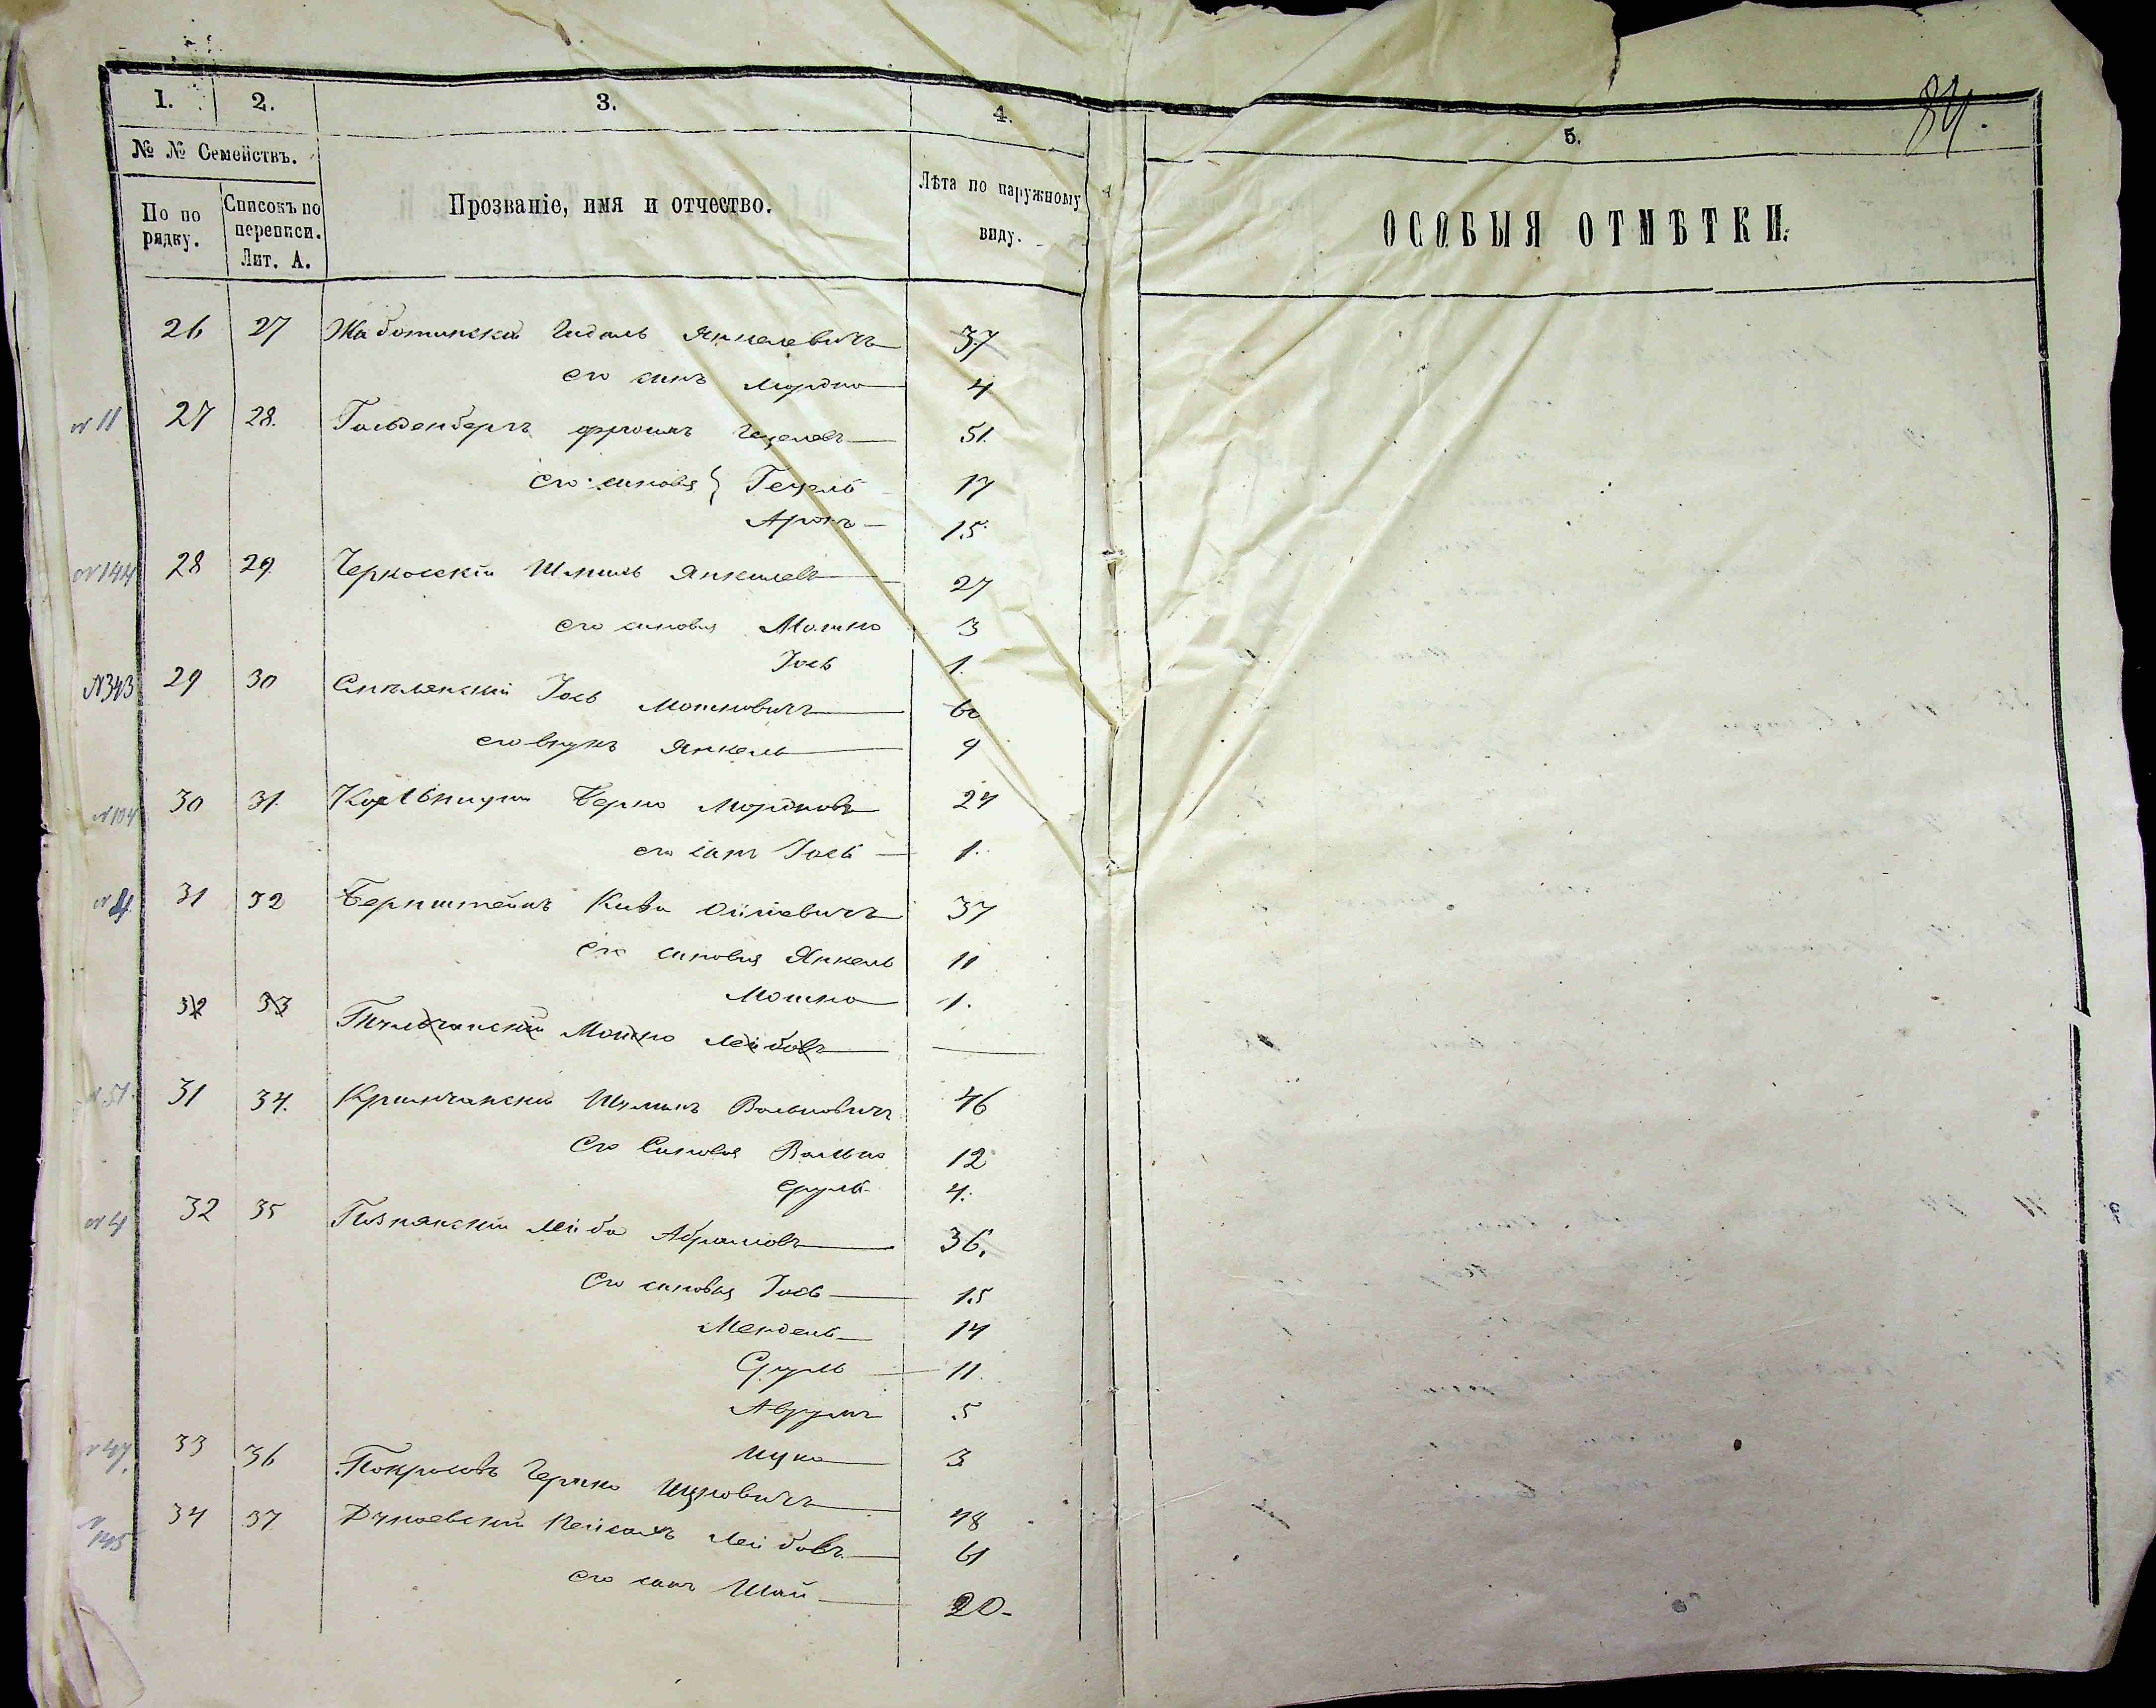 84.
1. 2. 3. 4. 5.
№ № Семействъ.
По порядку. Списокъ по переписи. Лит. А. Прозваніе, имя и отчество. Лѣта по наружному виду. ОСОБЫЯ ОТМѢТКИ.
26 27 Жаботинскій Гидаль Янкелевичъ 37
его сынъ Мордко 4
№ 11 27 28. Гольденбергъ Фроимъ Гецелевъ 51.
его сыновья } Гецель 17
Аронъ 15
№ 144 28 29 Черкаскій Шмиль Янкилевъ 27
его сыновья Мошко 3
Іось 1.
№ 343 29 30 Смѣлянскій Іось Мошковичъ 60
его внукъ Янкель 9
№ 104 30 31. Берко Мордковъ 24
его сынъ Іось 1.
№ 31 32 Бернштейнъ Кива 37
его сыновья Янкель 11
Мошко 1.
32 33 Мошко Лейбовъ
№ 51. 31 34. Шулимъ Вольковичъ 46
Его Сыновья Волько 12
Сруль 4.
№ 4 32 35 Лейба Абрамовъ 36.
Его сыновья Іось 15
Мендель 14
Сруль 11.
Аврумъ 5
Ицко 3
№ 47. 33 36 Покрасовъ Гершко Ицковичъ 48
№ 145 34 37 Дунаевскій Пейсахъ Лейбовъ 61
его сынъ Шай 20